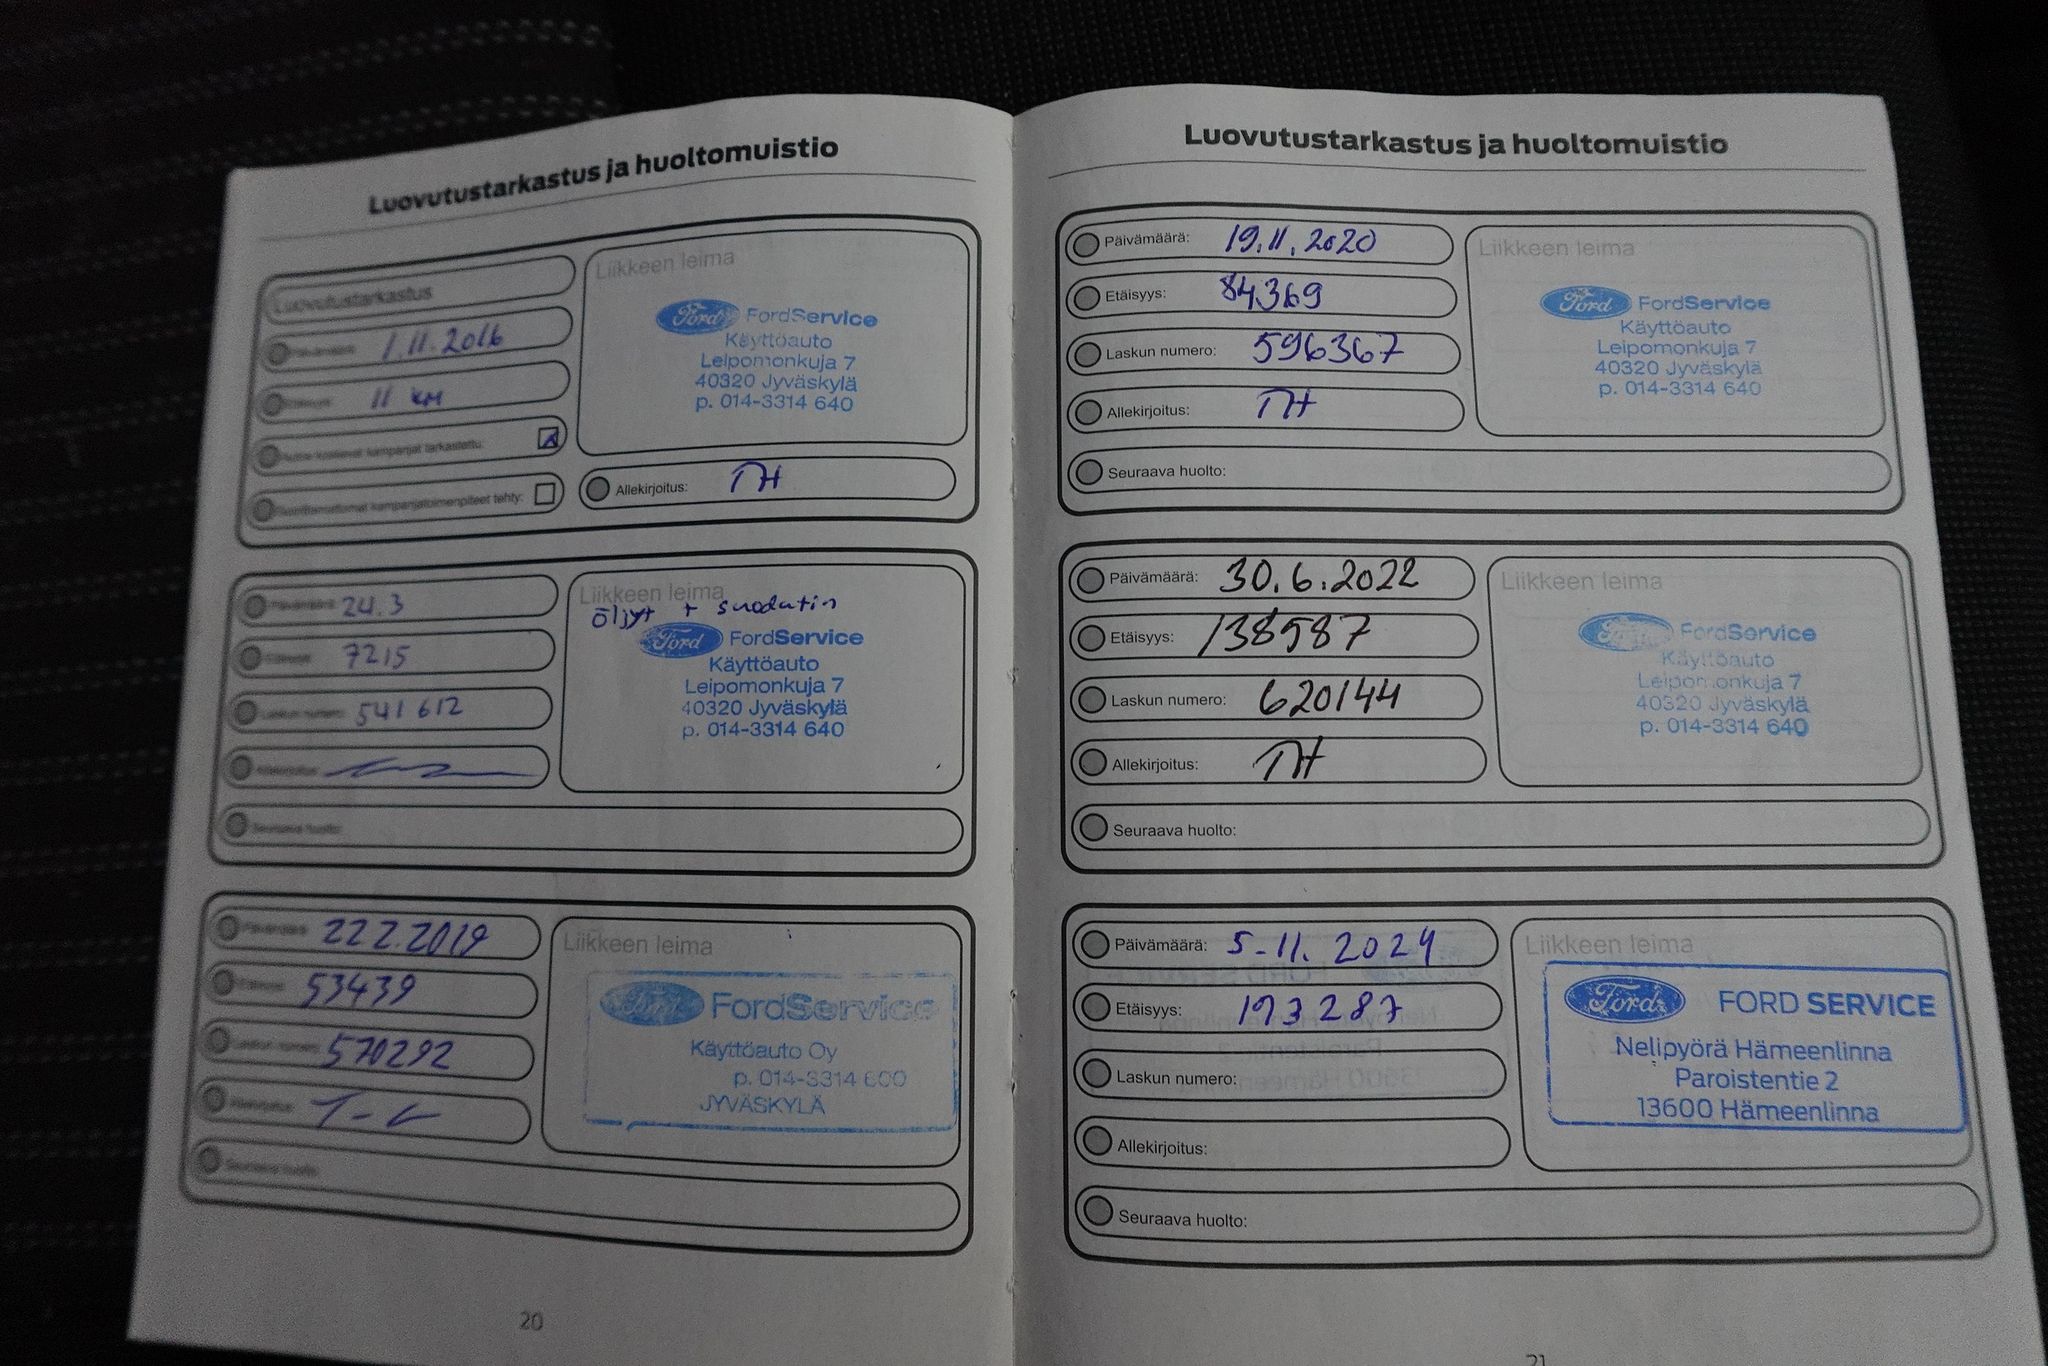 Luovutustarkastus ja huoltomuistio
Luovutustarkastus
Päivämäärä: 1.11.2016
Etäisyys: 11 KM
Autoa koskevat kampanjat tarkastettu:
kampanjatoimenpiteet tehty:
Liikkeen leima
Ford FordService
Käyttöauto
Leipomonkuja 7
40320 Jyväskylä
p. 014-3314 640
Allekirjoitus: TH
Päivämäärä: 24.3
Etäisyys: 7215
Laskun numero: 541 612
Allekirjoitus:
Liikkeen leima
öljyt + suodatin
Ford FordService
Käyttöauto
Leipomonkuja 7
40320 Jyväskylä
p. 014-3314 640
Seuraava huolto:
Päivämäärä: 22 2.2019
Etäisyys: 53439
Laskun numero: 570292
Allekirjoitus:
Liikkeen leima
Ford FordService
Käyttöauto Oy
p. 014-3314 600
JYVÄSKYLÄ
Seuraava huolto:
20
Luovutustarkastus ja huoltomuistio
Päivämäärä: 19.11.2020
Etäisyys: 84369
Laskun numero: 596367
Allekirjoitus: TH
Liikkeen leima
Ford FordService
Käyttöauto
Leipomonkuja 7
40320 Jyväskylä
p. 014-3314 640
Seuraava huolto:
Päivämäärä: 30.6.2022
Etäisyys: 138587
Laskun numero: 620144
Allekirjoitus: TH
Liikkeen leima
Ford FordService
Käyttöauto
Leipomonkuja 7
40320 Jyväskylä
p. 014-3314 640
Seuraava huolto:
Päivämäärä: 5-11. 2024
Etäisyys: 193 287
Laskun numero:
Allekirjoitus:
Liikkeen leima
Ford FORD SERVICE
Nelipyörä Hämeenlinna
Paroistentie 2
13600 Hämeenlinna
Seuraava huolto:
21